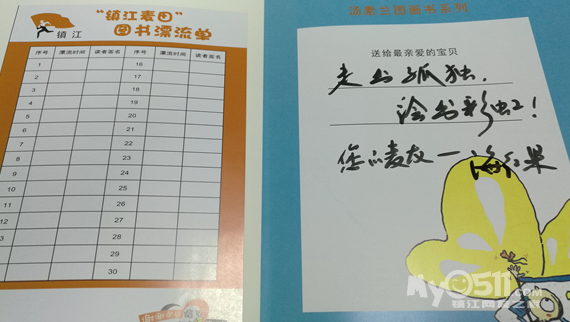 "镇江麦田"
图书漂流单
镇江
序号 漂流时间 读者签名 序号 漂流时间 读者签名
1 16
2 17
3 18
4 19
5 20
6 21
7 22
8 23
9 24
10 25
11 26
12 27
3 28
29
30
汤素兰图画书系列
送给最亲爱的宝贝
走出孤独,
绘出彩虹!
您的麦友一海红果
My0511.com
镇江网友之家